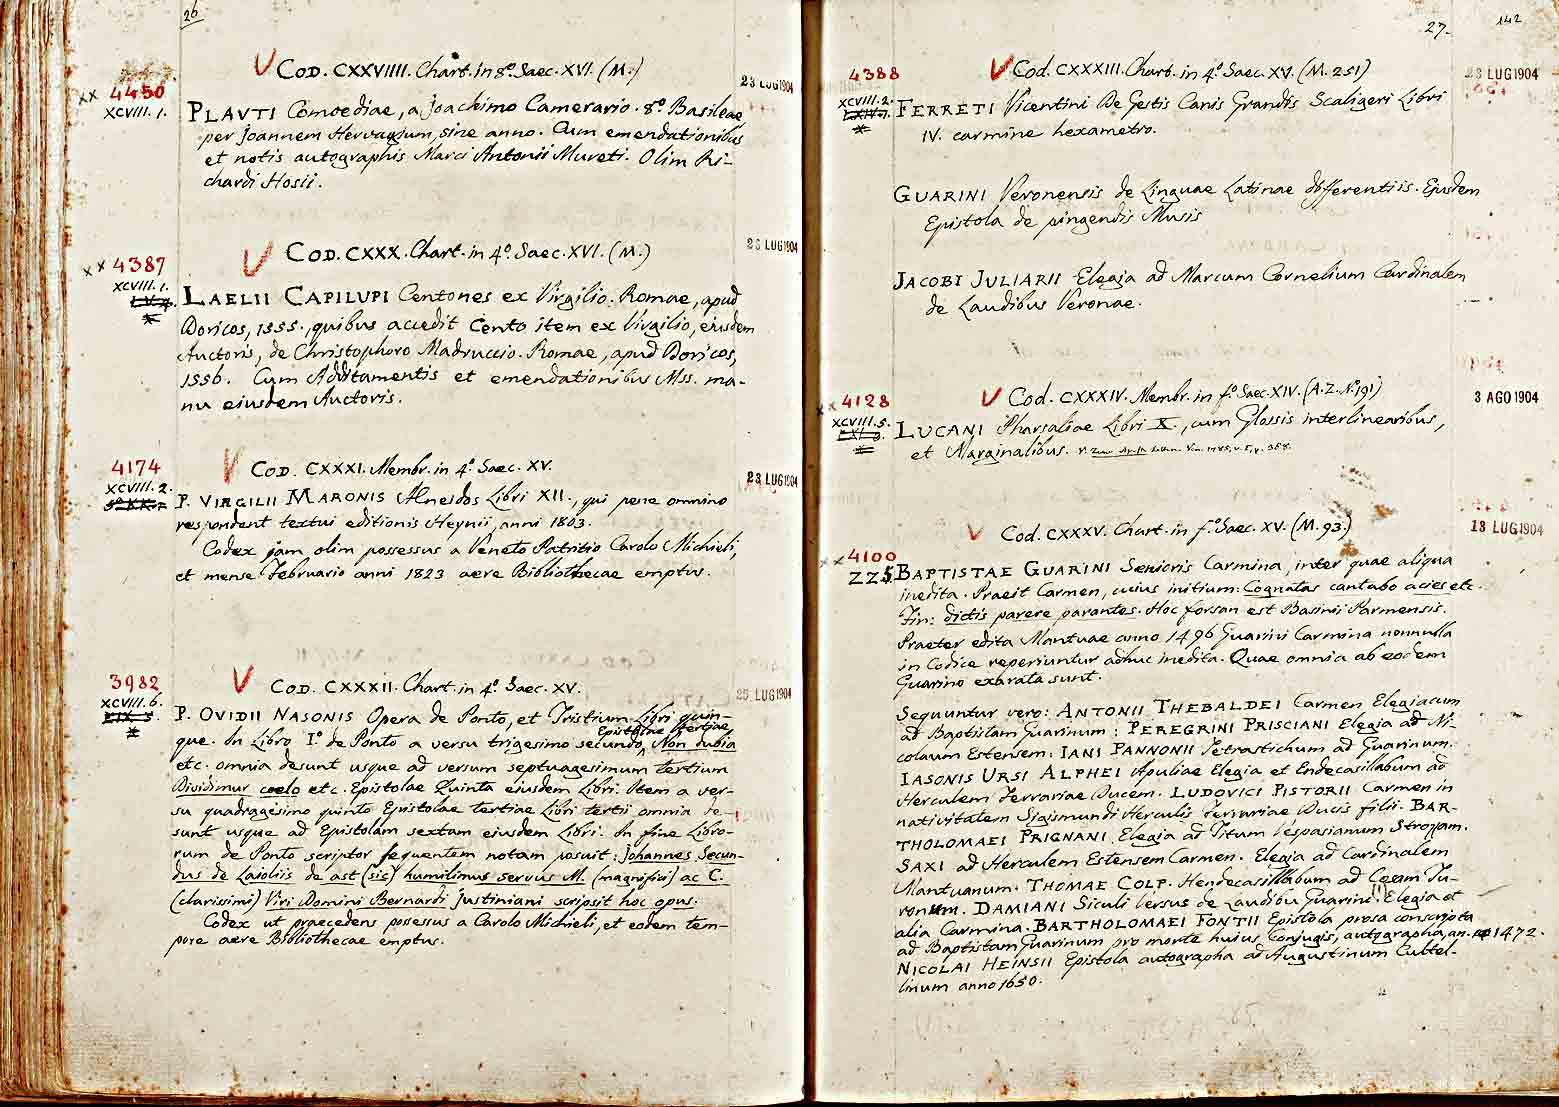 26
V COD. CXXVIIII. Chart. in 8º. Saec. XVI. (M.)
23 LUG 1904
xx 4450
XCVIII. 1.
PLAVTI Comoediae, a Joachimo Camerario. 8º. Basileae,
per Joannem Hervagium, sine anno. Cum emendationibus
et notis autographis Marci Antonii Mureti. Olim Ri-
chardi Hosii.
V COD. CXXX. Chart. in 4º. Saec. XVI. (M.)
23 LUG 1904
xx 4387
XCVIII. 1.
LAELII CAPILUPI Centones ex Virgilio. Romae, apud
Doricos, 1555., quibus accedit Cento item ex Virgilio, eiusdem
Auctoris, de Christophoro Madruccio. Romae, apud Doricos,
1556. Cum Additamentis et emendationibus Mss. ma-
nu eiusdem Auctoris.
V COD. CXXXI. Membr. in 4º. Saec. XV.
23 LUG 1904
4174
XCVIII. 2.
P. VIRGILII MARONIS Aeneidos Libri XII., qui pene omnino
respondent textui editionis Heynii, anni 1803.
Codex jam olim possessus a Veneto Patritio Carolo Michieli,
et mense Februario anni 1823 aere Bibliothecae emptus.
V COD. CXXXII. Chart. in 4º. Saec. XV.
25 LUG 1904
3982
XCVIII. 6.
P. OVIDII NASONIS Opera de Ponto, et Tristium Libri quin-
Epistolae tertiae
que. In Libro Iº. de Ponto a versu trigesimo secundo, Non dubia
etc. omnia desunt usque ad versum septuagesimum tertium
Dividimur coelo etc. Epistolae Quinta eiusdem Libri. Item a ver-
su quadragesimo quinto Epistolae tertiae Libri tertii omnia de-
sunt usque ad Epistolam sextam eiusdem Libri. In fine Libro-
rum de Ponto scriptor sequentem notam posuit: Johannes Secun-
dus de Laioliis de ast (sic) humilimus servus M. (magnifici) ac C.
(clarissimi) Viri Domini Bernardi Justiniani scripsit hoc opus.
Codex ut praecedens possessus a Carolo Michieli, et eodem tem-
pore aere Bibliothecae emptus.
27.
142
V Cod. CXXXIII. Chart. in 4º. Saec. XV. (M. 251)
23 LUG 1904
4388
XCVIII. 2.
FERRETI Vicentini De Gestis Canis Grandis Scaligeri Libri
IV. carmine hexametro.
GUARINI Veronensis de Linguae Latinae differentiis. Ejusdem
Epistola de pingendis Musis
JACOBI JULIARII Elegia ad Marcum Cornelium Cardinalem
de Laudibus Veronae.
V Cod. CXXXIV. Membr. in fº. Saec. XIV. (A. Z. Nº. 191)
3 AGO 1904
xx 4128
XCVIII. 5.
LUCANI Pharsaliae Libri X., cum Glossis interlinearibus,
et Marginalibus.
V Cod. CXXXV. Chart. in fº. Saec. XV. (M. 93.)
13 LUG 1904
xx 4100
ZZ5.
BAPTISTAE GUARINI Senioris Carmina, inter quae aliqua
inedita. Praeit Carmen, cuius initium: Cognatas cantabo acies etc.
Fin: dictis parere parantes. Hoc forsan est Basinii Parmensis.
Praeter edita Mantuae anno 1496 Guarini Carmina nonnulla
in Codice reperiuntur adhuc inedita. Quae omnia ab eodem
Guarino exarata sunt.
Sequuntur vero: ANTONII THEBALDEI Carmen Elegiacum
ad Baptistam Guarinum: PEREGRINI PRISCIANI Elegia ad Ni-
colaum Estensem: IANI PANNONII Tetrastichum ad Guarinum.
IASONIS URSI ALPHEI Apuliae Elegia et Endecasillabum ad
Herculem Ferrariae Ducem. LUDOVICI PISTORII Carmen in
nativitatem Sigismundi Herculis Ferrariae Ducis filii. BAR-
THOLOMAEI PRIGNANI Elegia ad Titum Vespasianum Strozam.
SAXI ad Herculem Estensem Carmen. Elegia ad Cardinalem
Mantuanum. THOMAE COLP. Hendecasillabum ad Coam Tu-
ronum. DAMIANI Siculi Versus de Laudibu Guarini. Elegia et
alia Carmina. BARTHOLOMAEI FONTII Epistola prosa conscripta
ad Baptistam Guarinum pro morte huius Conjugis, autographa, an. 1472.
NICOLAI HEINSII Epistola autographa ad Augustinum Cultel-
linum anno 1650.